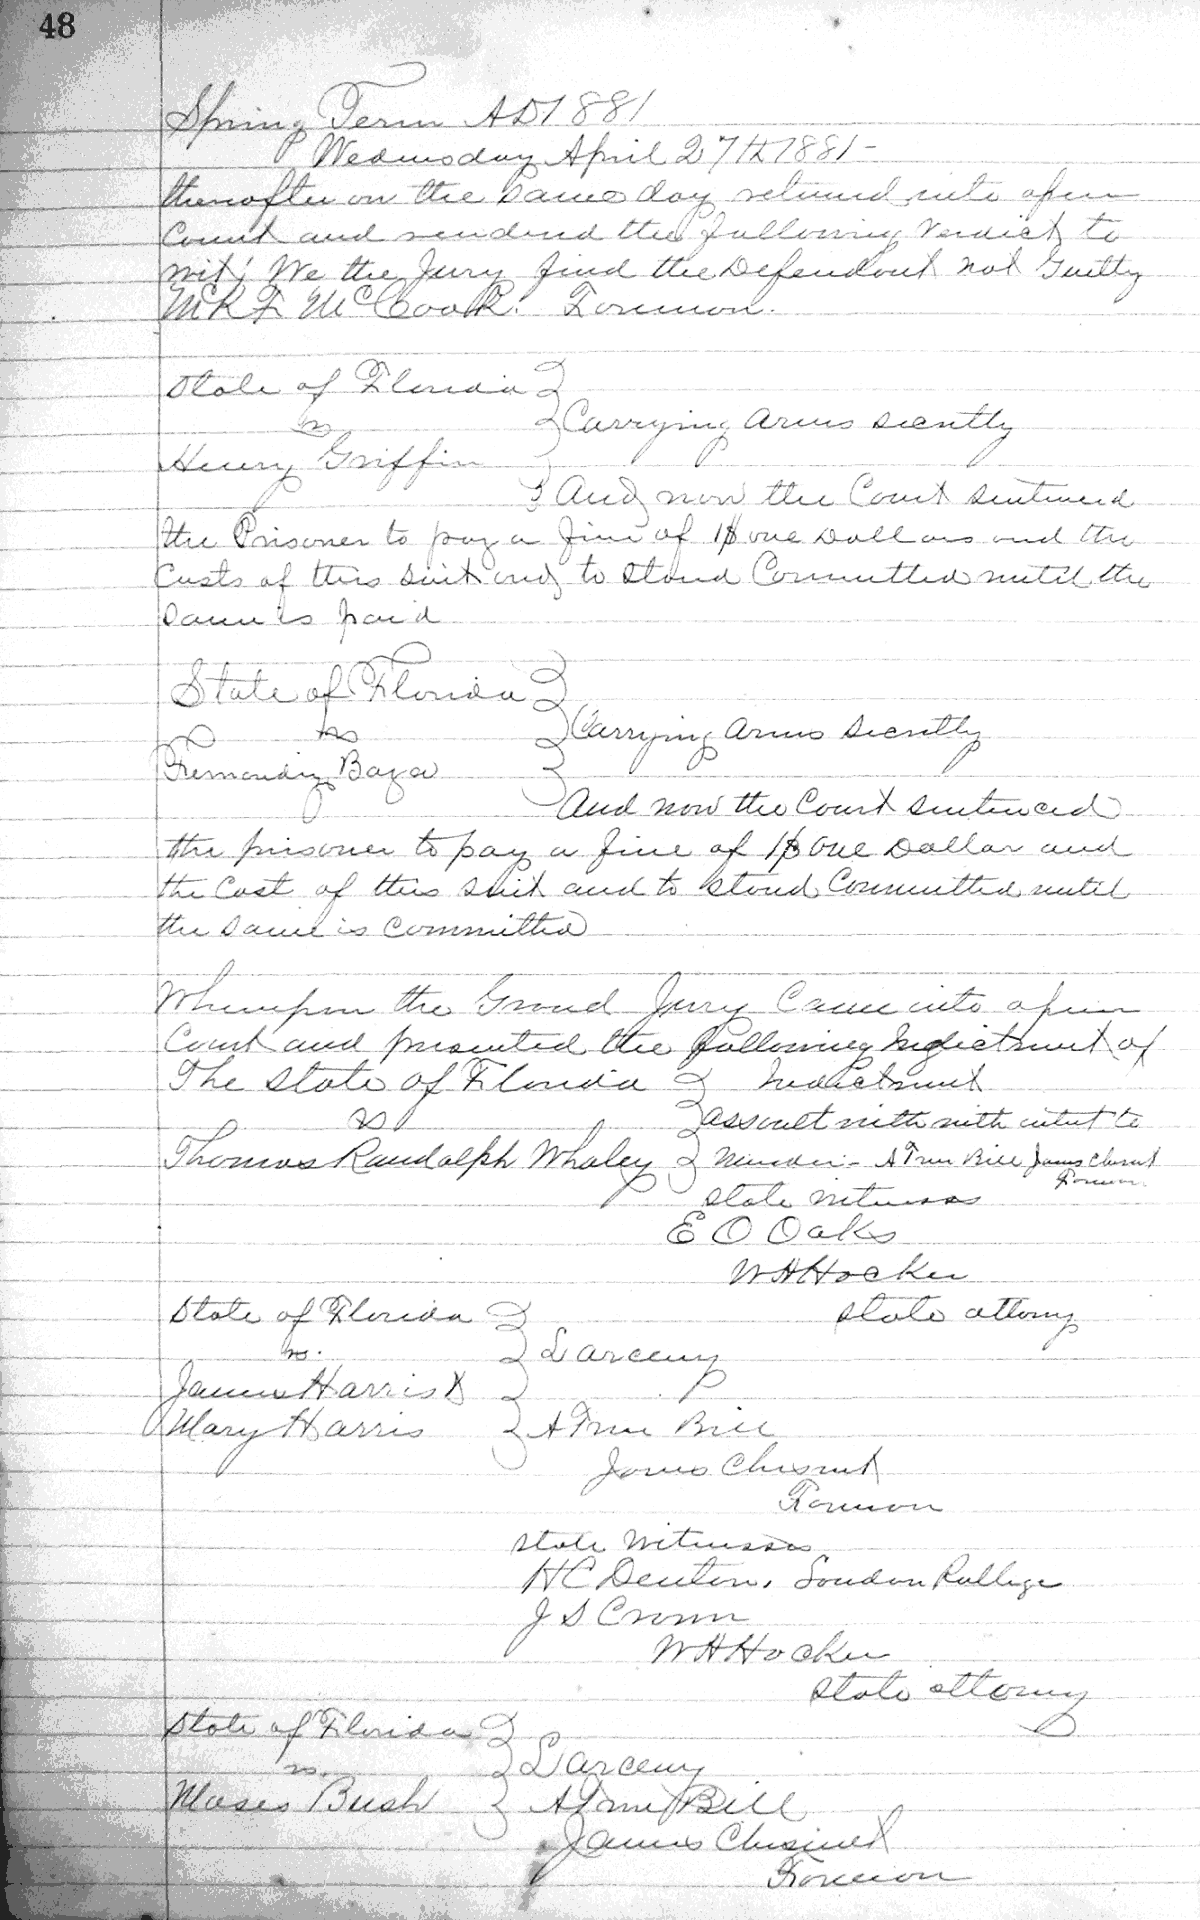 48
Spring Term AD 1881
Wednesday April 27th 1881-
thereafter on the same day returned into open
Court and rendered the following Verdict to
wit! We the Jury find the Defendant not Guilty
McCook. Foreman.
State of Florida
vs
Carrying Arms secretly
Henry Griffin
And now the Court sentenced
the Prisoner to pay a fine of 1$ one Dollars and the
Costs of this suit and to stand Committed until the
same is paid
State of Florida
vs
Carrying Arms secretly
Baza
And now the Court sentenced
the prisoner to pay a fine of 1$ One Dollar and
the Cost of this suit and to stand Committed until
the same is Committed
Whereupon the Grand Jury Came into open
Court and presented the following Indictment of
The State of Florida Indictment
vs
assault with with intent to
Thomas Randolph Whaley Murder - A True Bill James Chesnut
Foreman
state witness
E O Oaks
W H Hocker
State of Florida state attorny
vs.
Larceny
James Harris &
Mary Harris A True Bill
James Chesnut
Foreman
state witnesses
H C Denton, London
J S Crown
W H Hocker
state attorny
State of Florida
vs.
Larceny
Moses Bush A True Bill
James Chesnut
Foreman